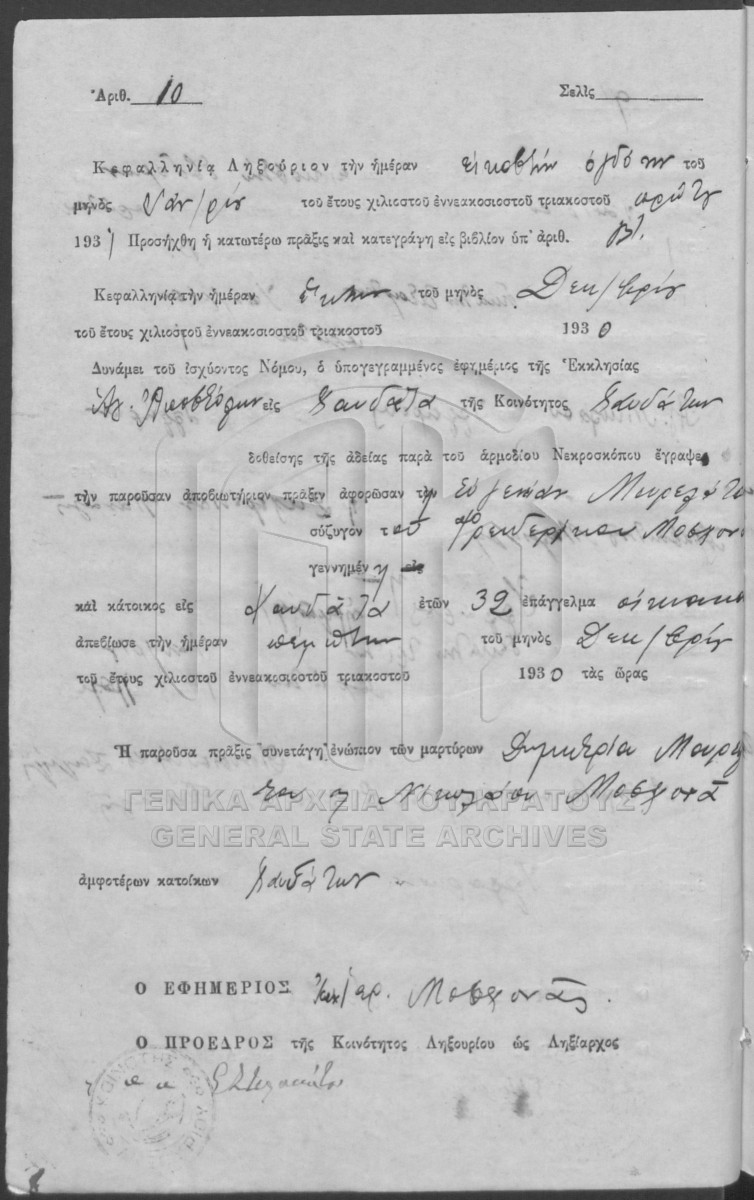 Ἀριθ. 10 Σελὶς
Κεφαλληνία Ληξούριον τὴν ἡμέραν εἰκοστὴν ὀγδόην τοῦ
μηνὸς τοῦ ἔτους χιλιοστοῦ ἐννεακοσιοστοῦ τριακοστοῦ πρώτου
1931 Προσήχθη ἡ κατωτέρω πρᾶξις καὶ κατεγράφη εἰς βιβλίον ὑπ' ἀριθ.
Κεφαλληνία τὴν ἡμέραν ἕκτην τοῦ μηνὸς Δεκ/βρίου
τοῦ ἔτους χιλιοστοῦ ἐννεακοσιοστοῦ τριακοστοῦ 1930
Δυνάμει τοῦ ἰσχύοντος Νόμου, ὁ ὑπογεγραμμένος ἐφημέριος τῆς Ἐκκλησίας
Ἁγ. Ἀποστόλων εἰς τῆς Κοινότητος
δοθείσης τῆς ἀδείας παρὰ τοῦ ἁρμοδίου Νεκροσκόπου ἔγραψε
τὴν παροῦσαν ἀποβιωτήριον πρᾶξιν ἀφορῶσαν τὴν Εὐγενίαν
σύζυγον τοῦ
γεννημένη εἰς
καὶ κάτοικος εἰς ἐτῶν 32 ἐπάγγελμα οἰκιακὰ
ἀπεβίωσε τὴν ἡμέραν πέμπτην τοῦ μηνὸς Δεκ/βρίου
τοῦ ἔτους χιλιοστοῦ ἐννεακοσιοστοῦ τριακοστοῦ 1930 τὰς ὥρας
Ἡ παροῦσα πρᾶξις συνετάγη ἐνώπιον τῶν μαρτύρων Δημητρίου
Νικολάου Μοσχονᾶ
ΓΕΝΙΚΑ ΑΡΧΕΙΑ ΤΟΥ ΚΡΑΤΟΥΣ
GENERAL STATE ARCHIVES
ἀμφοτέρων κατοίκων
Ο ΕΦΗΜΕΡΙΟΣ Μοσχονᾶς.
Ο ΠΡΟΕΔΡΟΣ τῆς Κοινότητος Ληξουρίου ὡς Ληξίαρχος